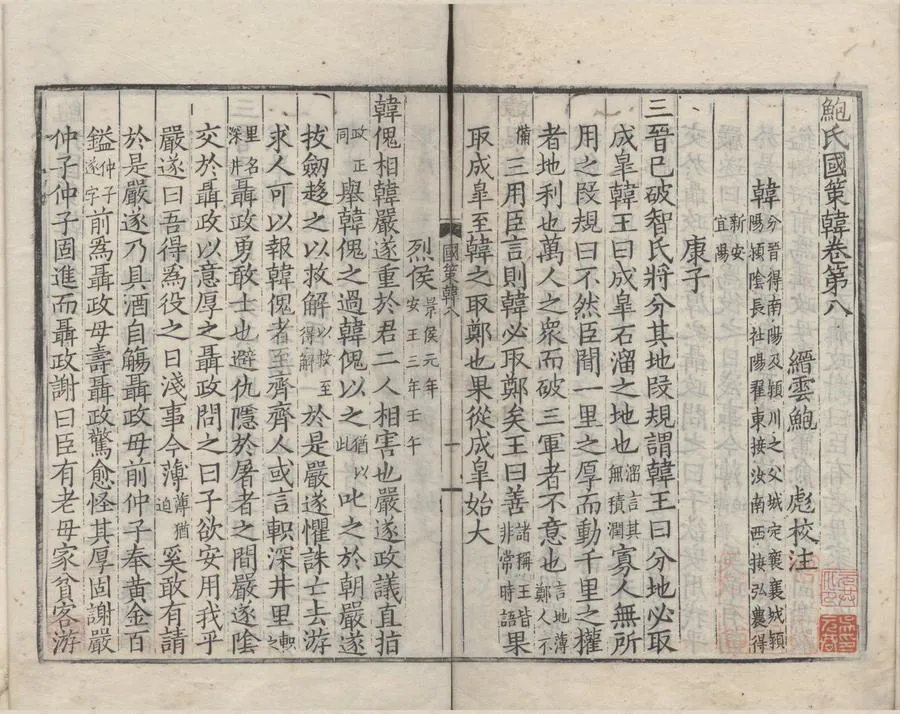 鮑氏國策韓卷第八
縉雲鮑 彪校注
韓分晉得南陽及潁川之父城定襄襄城潁陽潁陰長社陽翟東接汝南西接弘農得新安宜陽
康子
三晉已破智氏將分其地段規謂韓王曰分地必取
成皐韓王曰成皐石溜之地也溜言其無積潤寡人無所
用之段規曰不然臣聞一里之厚而動千里之權
者地利也萬人之衆而破三軍者不意也言地薄鄭人不
備王用臣言則韓必取鄭矣王曰善諸稱王皆非常時語果
取成皐至韓之取鄭也果從成皐始大
國策韓八
一
烈侯景侯元年安王三年壬午
韓傀相韓嚴遂重於君二人相害也嚴遂政議直指
政正同舉韓傀之過韓傀以之猶以此叱之於朝嚴遂
拔劒趍之以救解以救至得解於是嚴遂懼誅亡去游
求人可以報韓傀者至齊齊人或言軹深井里軹之
里名深井聶政勇敢士也避仇隱於屠者之間嚴遂隂
交於聶政以意厚之聶政問之曰子欲安用我乎
嚴遂曰吾得爲役之日淺事今薄薄猶迫奚敢有請
於是嚴遂乃具酒自觴聶政母前仲子奉黄金百
鎰仲子遂字前爲聶政母壽聶政驚愈怪其厚固謝嚴
仲子仲子固進而聶政謝曰臣有老母家貧客游